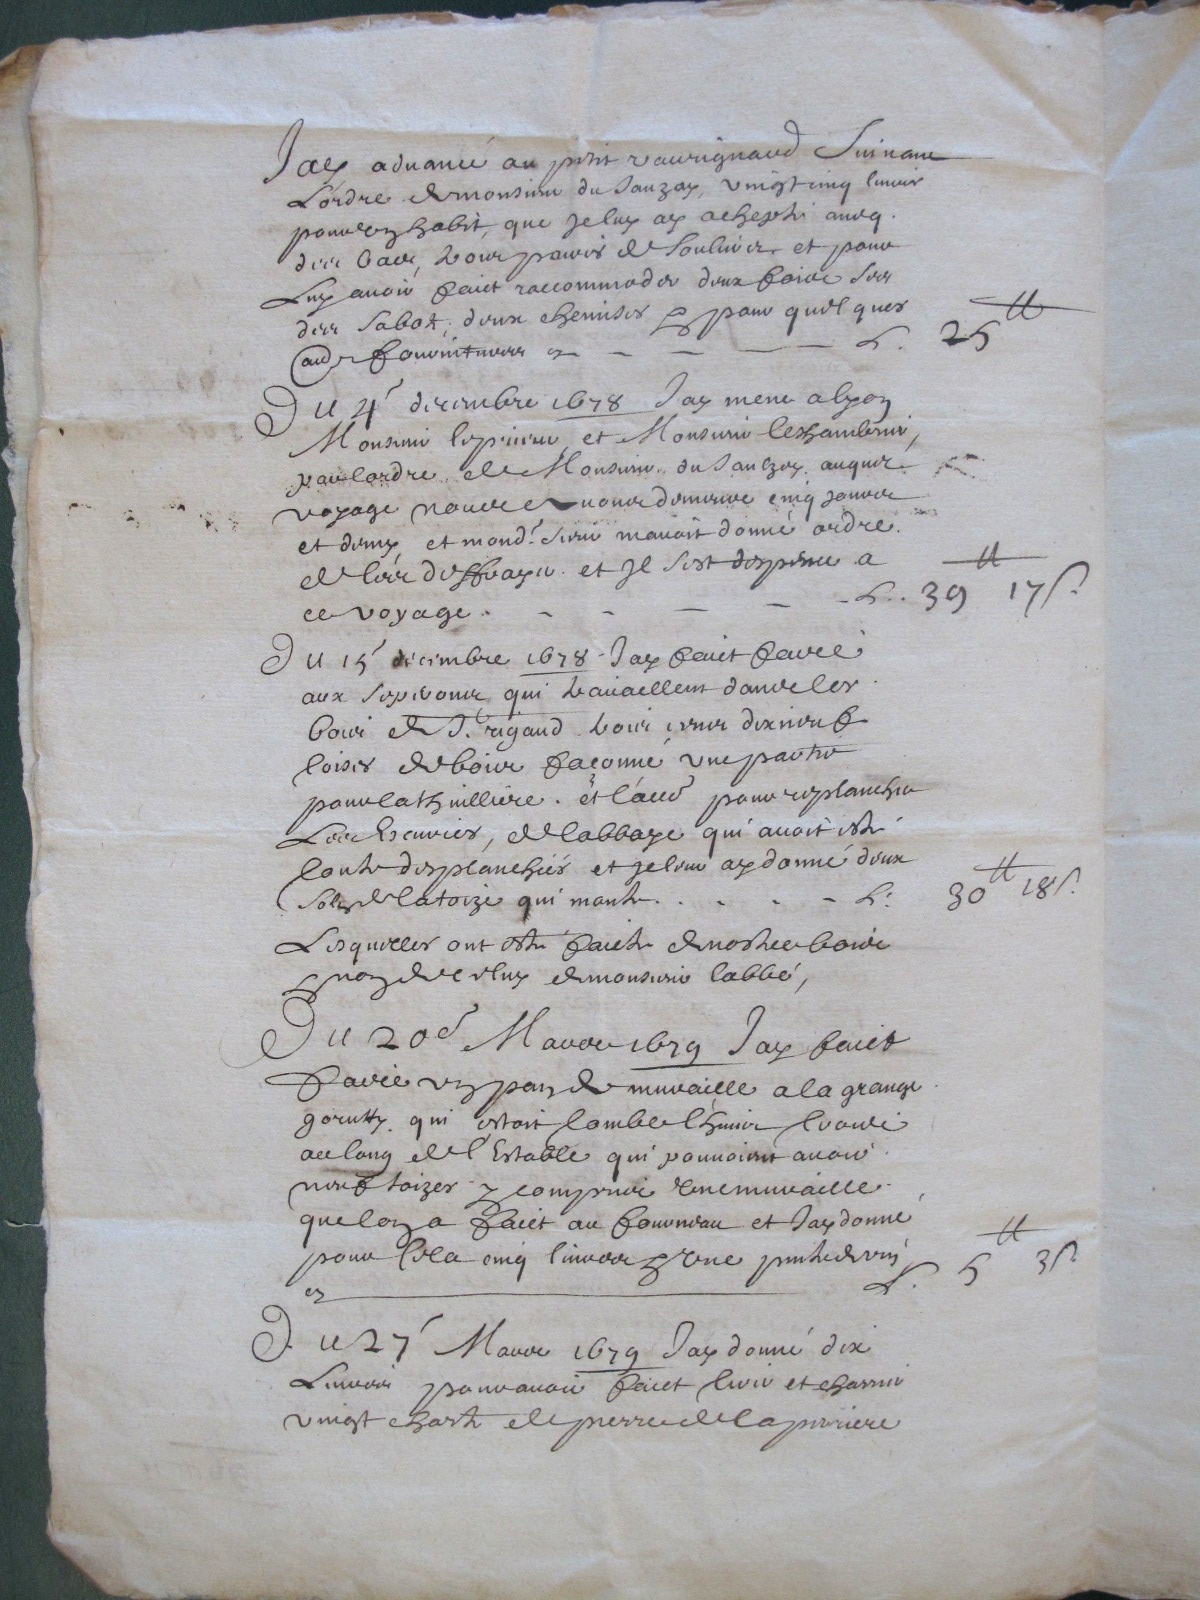 Jay advancé au petit vaurignaud Suivant
L'ordre de monsieur du Sauzay, vingt cinq livres
pour un habit, que Je luy ay achepté avecq
des bas, trois paires de souliers et pour
Luy avoir faict raccommoder deux fois ses
des sabot, deux chemises & pour quelques
aud fournitures — — — L. 25 ₶
Du 4e decembre 1678 Jay mené a lyon
Monsieur le prieur et Monsieur le chambrier,
par lordre de Monsieur du Sauzay auquel
voyage nous demeure cinq Jours
et demy, et mond. Sieur mavoit donné ordre
de les deffrayer et Jl sest despencé a
ce voyage. — — — L. 39 ₶ 17 s.
Du 15e decembre 1678 Jay faict faire
aux Sepizons qui travaillent dans les
bois de S. rigaud trois cens dix neuf
toises de bois façonné une partie
pour la thuilliere. et l'aud pour replancher
Les Escuries, de labbaye qui avoit esté
toute desplanchés et je leur ay donné deux
sols de la toize qui monte. . . . — L. 30 ₶ 18 s.
Lesquelles ont esté faicte de nostre bois
& non de celuy de monsieur labbé,
Du 20e Mars 1679 Jay faict
faire un pan de muraille a la grange
qui estoit tombé lhiver
au long de l'Estable qui pouvoient avoir
neuf toizes y compris une muraille
que lon a faict au fourneau et Jay donné
pour cela cinq livres & une pinte de vin
cy L. 5 ₶ 3 s.
Du 27e Mars 1679 Jay donné dix
Livres pour avoir faict tirer et charrier
vingt chars de pierre de la perriere